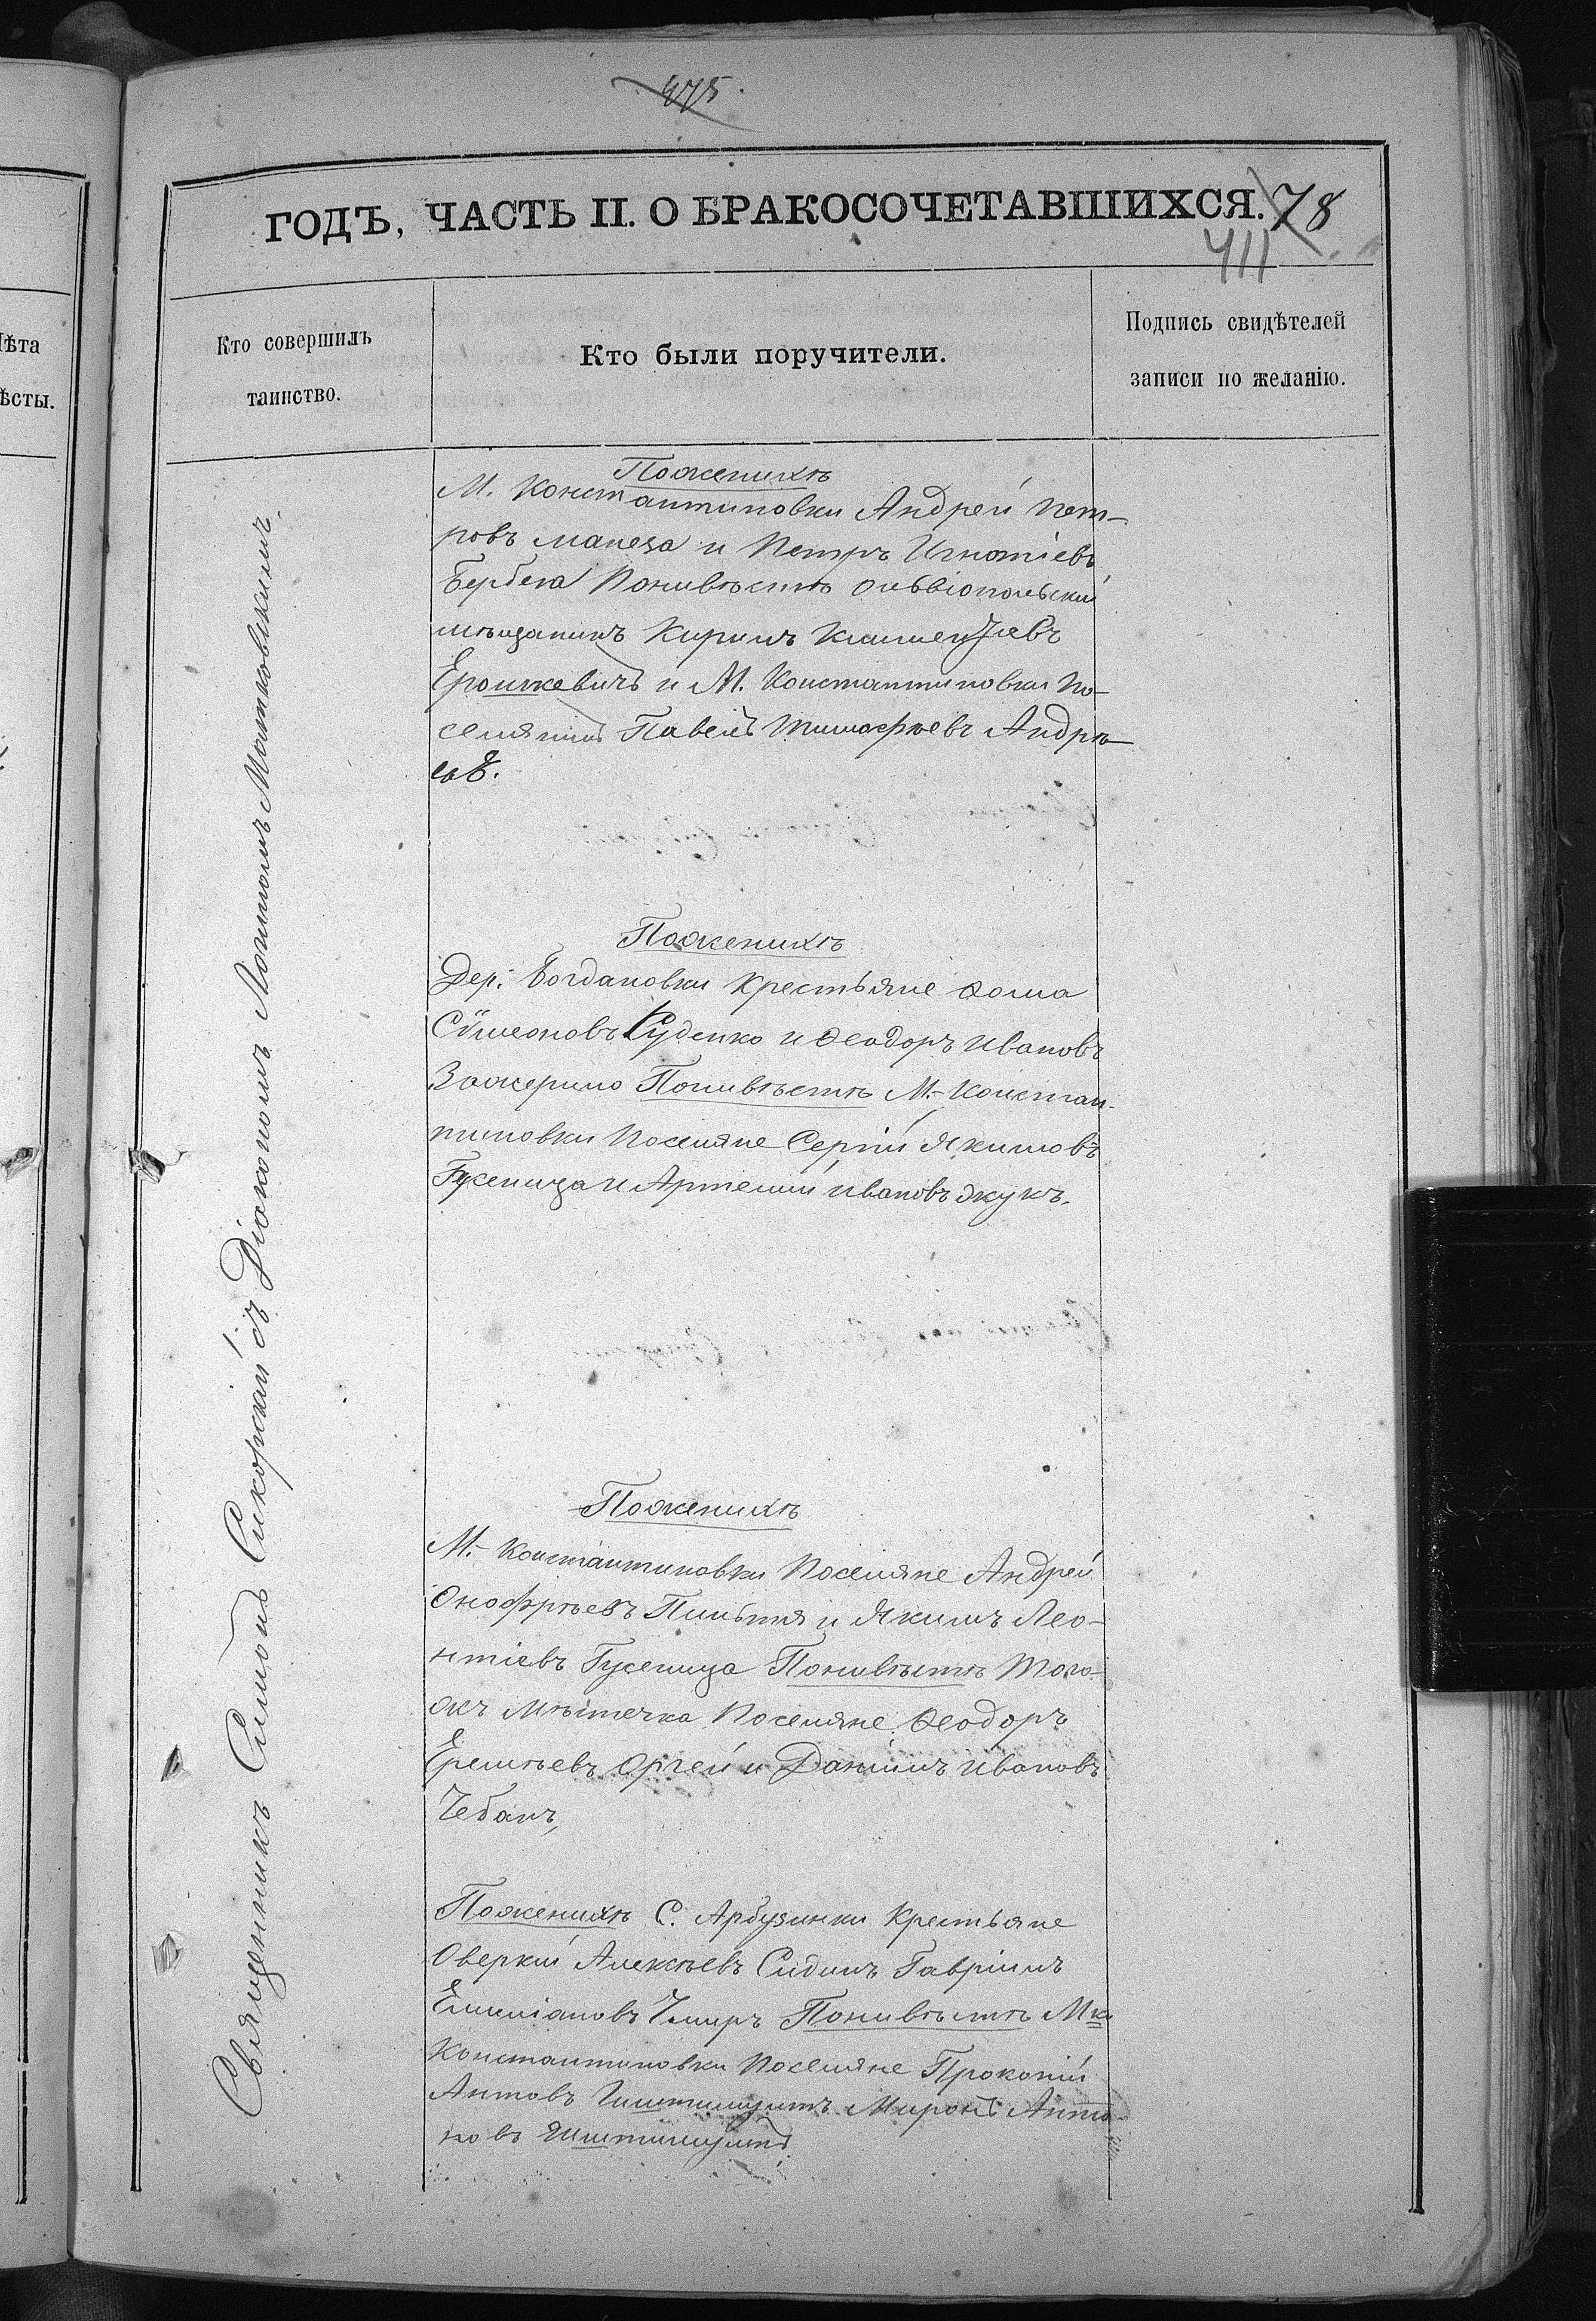 475
ГОДЪ, ЧАСТЬ II. О БРАКОСОЧЕТАВШИХСЯ. 78
411
ѣсты.
Кто совершилъ
таинство.
Кто были поручители.
Подпись свидѣтелей
записи по желанію.
Священникъ Симонъ Сикорскій съ Діакономъ Матковскимъ
По женихѣ
М. Константиновки Андрей Пет-
ровъ и Петръ Игнатіевъ
По невѣстѣ Ольвіопольскій
мѣщанинъ Кирилъ
Ерошкевичъ и М. Константиновки По-
селянинъ Павелъ Тимофѣевъ Андрѣ-
евъ.
По женихѣ
Дер. Богдановки Крестьяне Ѳома
Сѵмеоновъ Руденко и Ѳеодоръ Ивановъ
По невѣстѣ М. Констан-
тиновки Поселяне Сергій Якимовъ
Гусеница и Артемій Ивановъ Жукъ.
По женихѣ
М. Константиновки Поселяне Андрей
Онофрѣевъ и Якимъ Лео-
нтіевъ Гусеница По невѣстѣ Того-
жъ Мѣстечка Поселяне Ѳеодоръ
Еремѣевъ Оргей и Даніилъ Ивановъ
Чебанъ,
По женихѣ С. Арбузинки Крестьяне
Оверкій Алексѣевъ Гавріилъ
Емиліановъ По невѣстѣ М-ка
Константиновки Поселяне Прокопій
Миронъ Анто-
новъ